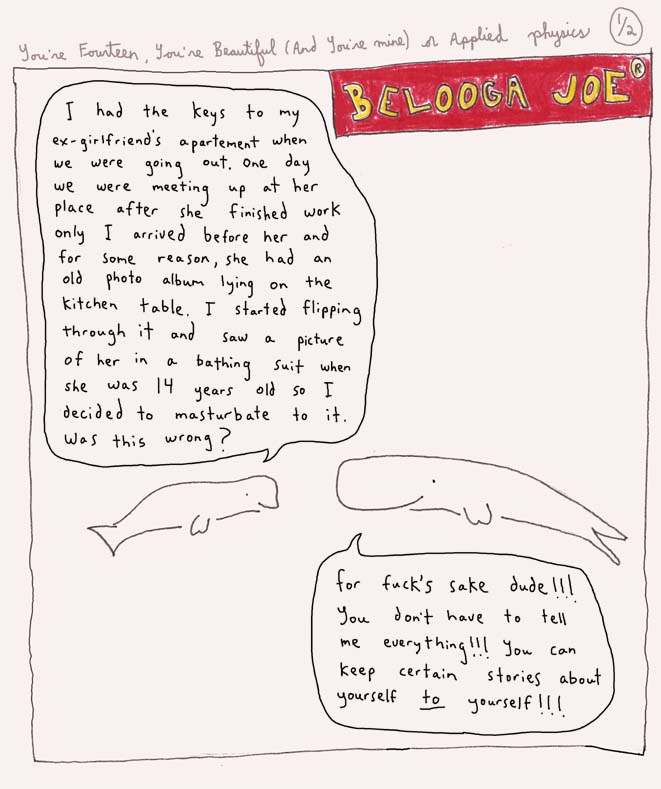 You're Fourteen, You're Beautiful (And You're mine) or Applied physics
1/2
BELOOGA JOE®
I had the keys to my
ex-girlfriend's apartement when
we were going out. One day
we were meeting up at her
place after she finished work
only I arrived before her and
for some reason, she had an
old photo album lying on the
kitchen table. I started flipping
through it and saw a picture
of her in a bathing suit when
she was 14 years old so I
decided to masturbate to it.
Was this wrong?
for fuck's sake dude!!!
You don't have to tell
me everything!!! You can
keep certain stories about
yourself to yourself!!!